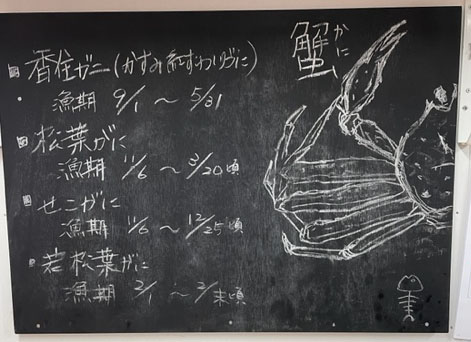 蟹 かに
香住ガニ(かすみ紅ずわいがに)
漁期 9/1 ~ 5/31
松葉がに
漁期 11/6 ~ 3/20頃
せこがに
漁期 11/6 ~ 12/25頃
若松葉がに
漁期 2/1 ~ 2/末頃